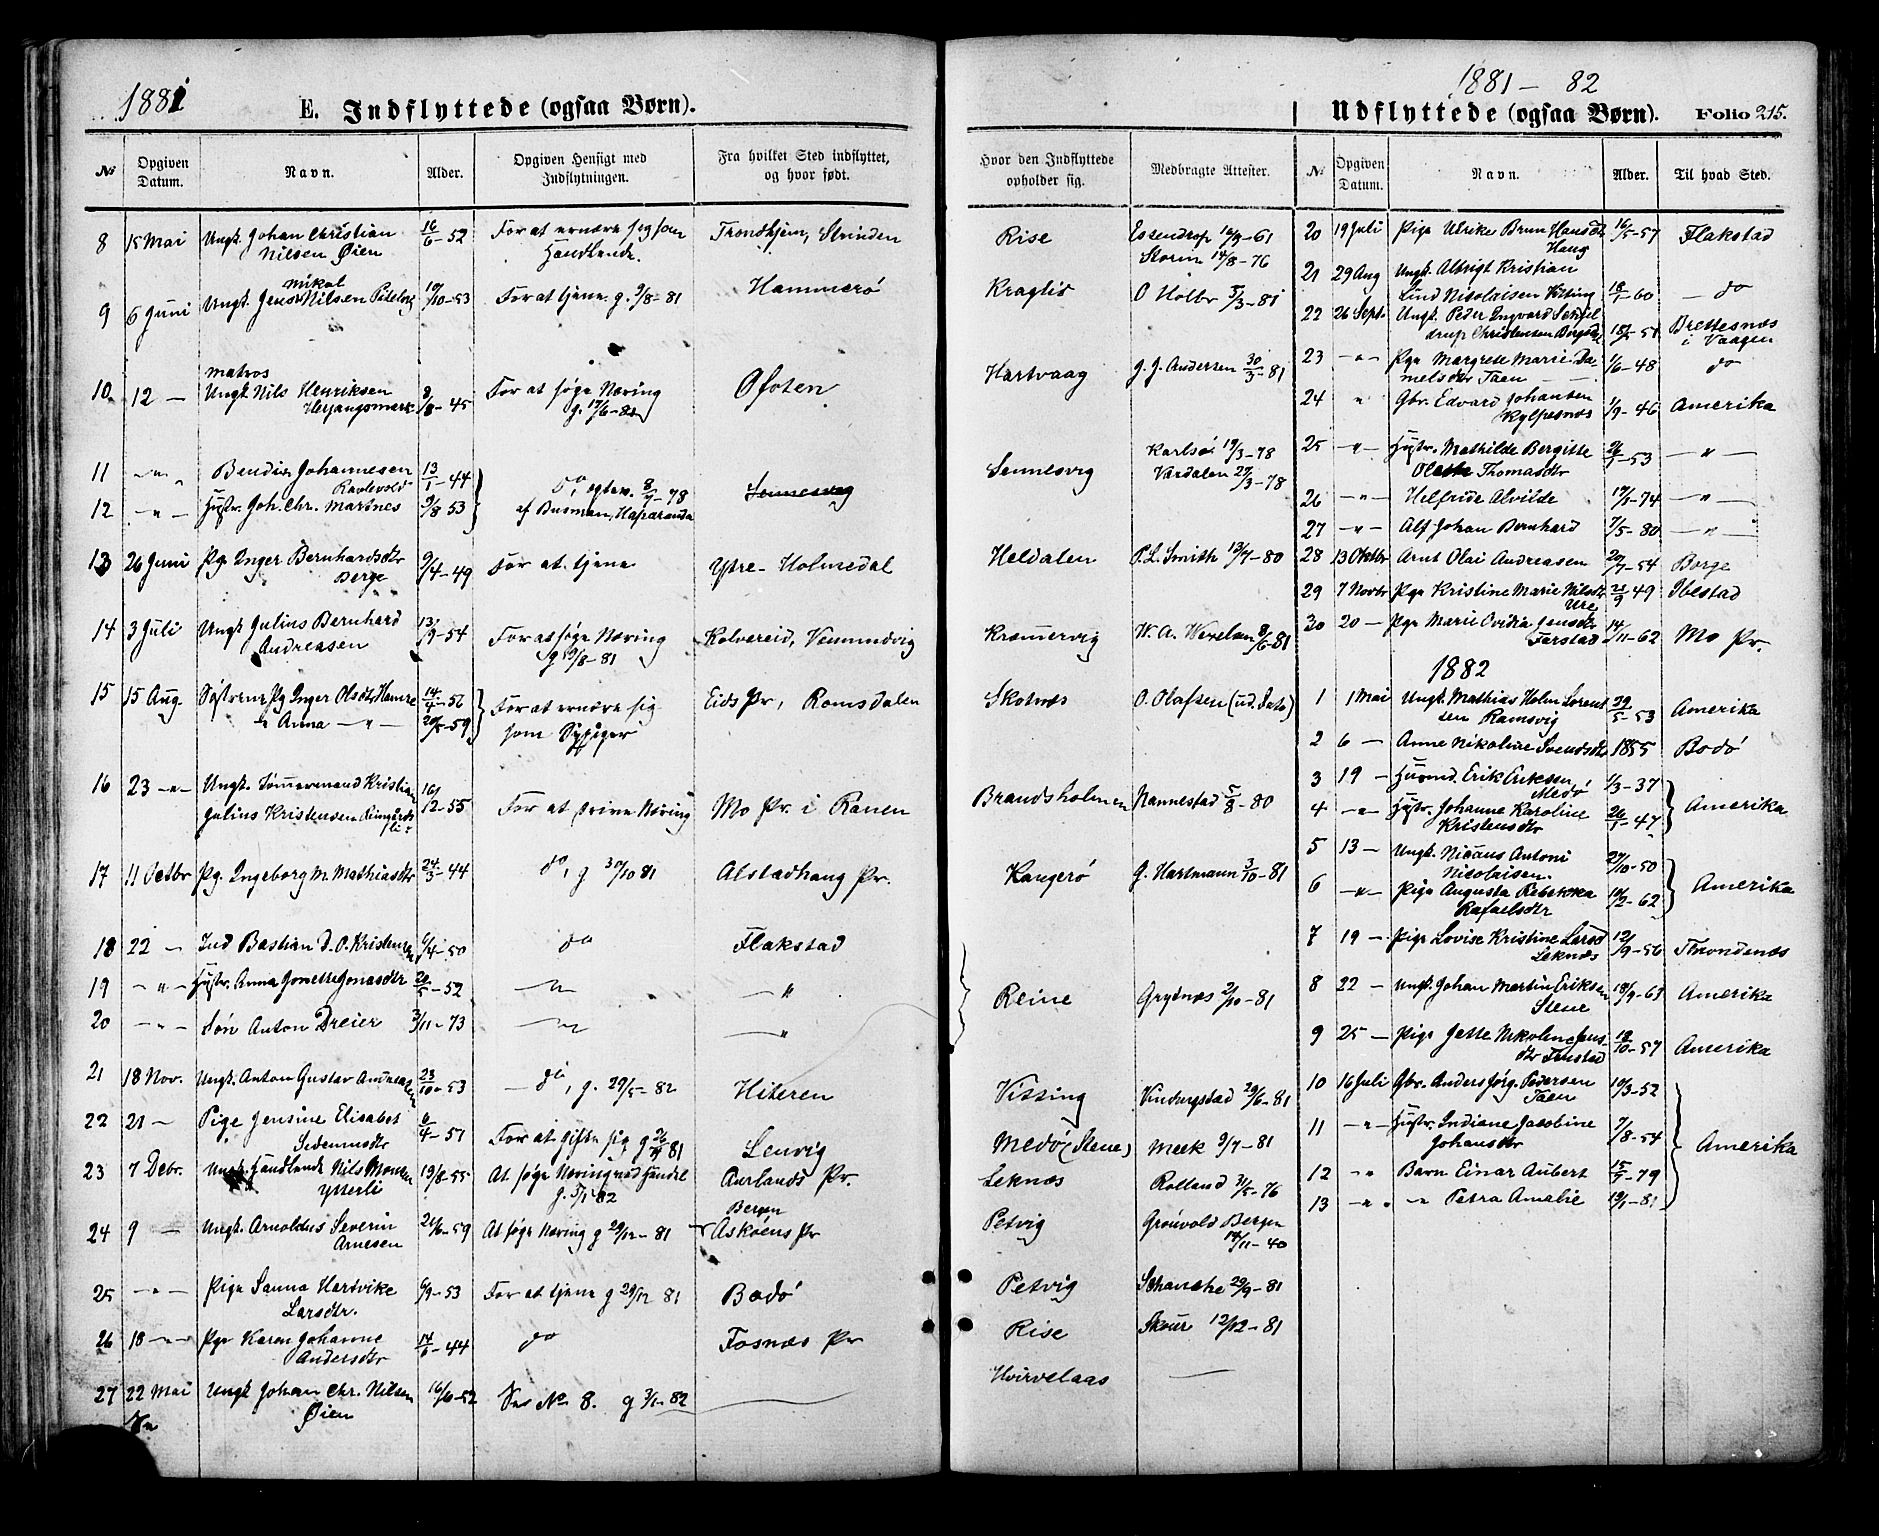 1881
E. Indflyttede (ogsaa Børn).
№ Opgiven Datum. Navn. Alder. Opgiven Hensigt med Indflytningen. Fra hvilket Sted indflyttet, og hvor født.
8 15 Mai Ungk. Johan Christian 16/6-52 For at ernære sig som Trondhjem, Strinden
Nilsen Øien Handlende.
9 6 Juni Ungk. Jens Mikal Nilsen 10/10-53 For at tjene g. 9/8-81 Hammerø
matros
10 12 — Ungk Nils Henriksen 8/8-45 For at søge Næring Ofoten
Herjangsmark g. 17/6-81
11 -"- Johannesen 13/1-44
Ravlevold D°, 8/7-78 Sennesvig
12 -"- Hustr. Joh. Chr. Martnes 9/8 53 af Busman, Haparanda
13 26 Juni Pg. Inger Bernhardsdtr 9/4-49 For at tjene Ytre-Holmedal
Berge
14 3 Juli Ungk Julius Bernhard 13/9-54 For at søge Næring Kolvereid, Vemundvig
Andreasen g 19/8-81
15 15 Aug. Søstrene Pg Inger Olsdtr Hamre 14/4-56 For at ernære sig Eids Pr, Romsdalen
Anna -"- 20/5-59 som Sypiger
16 23 -"- Ungk. Tømmermand Kristian 16/12-55 For at drive Næring Mo Pr. i Ranen
Julius Kristensen
17 11 Octbr Pg. Ingeborg M. Mathiasdtr 24/3-44 d°, g 30/10 81 Alstadhaug Pr.
18 22 — Ind Bastian D. O. Kristensen 6/4-50 do Flakstad
19 -"- Hustr. Anna Jonette Jonasdtr 20/5-52 -"- -"-
20 -"- Søn Anton Dreier 3/11-73 -"- -"-
21 18 Nov. Ungk. Anton Gustav Andreasen 23/10-53 — do, g. 29/5-82 Hiteren
22 21 — Pige Jensine Elisabet 6/4-57 For at gifte sig g 26/11 81 Lenvig
23 7 Debr. Ungk. Handlende Nils Monsen 19/8-55 At søge Næring ved Handel Aurlands Pr.
Ytterli g. 5/1 82
Bergen
24 9 — Ungk. Arnoldus Severin 21/6-59 At søge Næring g 29/12-81 Askøens Pr
Arnesen
25 -"- Pige Sanna Hartvike 6/9-53 For at tjene g 29/12 81 Bodø
Larsdtr.
26 10 -"- Pige Karen Johanne 14/6-44 do Fosnæs Pr
Andersdtr
27 22 Mai Ungk Johan Chr. Nilsen 16/6-52 Se No 8. g 3/1-82 —
Øien
1881 — 82
Udflyttede (ogsaa Børn). Folio 215.
Hvor den Indflyttede opholder sig. Medbragte Attester. № Opgiven Datum. Navn. Alder. Til hvad Sted.
Rise Essendrop 16/9-61
Storm 14/8-76
O Holbr 5/3-81
Hartvaag J. J. Andersen 30/3-81
Sennesvig Karlsö 19/3-78
27/3-78
Heldalen P. L. Smith 13/7-80
Kræmervig W. A. Wexelsen 8/6-81
Skotnæs O. Olafsen (ud. Dato)
Brandsholmen Nannestad 5/8-80
Kangerø G. Hartmann 3/10-81
Reine Grytnæs 2/10-81
Vissing 29/6-81
Medø (Stene) Meek 9/7-81
Leknæs Rolland 31/5-76
Petvig Grönvold Bergen
14/11-40
Petvig Schanche 29/9-81
Rise Skour 12/12-81
Hvirvelaas —
20 19 Juli Pige Ulrike Brun Hansdtr 16/5-57 Flakstad
Haug
21 29 Aug Ungk. Albrigt Kristian
Lind Nicolaisen 18/1-60 — do
22 26 Sept. Ungk. Peder Ingvard Schjel
drup Christensen 18/5-51 Brettesnæs i Vaagen
23 -"- Pige Margrete Marie Da-
nielsdtr Taen 1/6-48 do
24 " Gbr. Edvard Johansen 1/9-46 Amerika
Kylpesnæs
25 -"- Hustr. Mathilde Bergitte 26/7-53 -"-
Thomasdtr
26 -"- Helfride Alvilde 19/1-74 -"-
27 -"- Alf Johan Bernhard 7/5-80 -"-
28 13 Oktbr Arnt Olai Andreasen 20/7-54 Borge
29 7 Novbr Pige Kristine Marie Nilsdtr 21/9 49 Ibestad
Ure
30 20 — Pige Marie Ovidia Jensdtr 14/11-62 Mo Pr.
Farstad
1882
1 1 Mai Ungk. Mathias Holm Lorent 29/5-53 Amerika
sen Ramsvig
2 6 — Anne Nikoline Svendsdtr 1855 Bodø
3 19 — Husmd. Erik Eriksen 1/3-37
Medø Amerika
4 -"- Hustr. Johanne Karoline 26/1-47
Kristensdtr
5 13 — Ungk. Nicaus Antoni 27/10-50
Nicolaisen. Amerika
6 -"- Pige Augusta Rebekka 10/2-62
Rafaelsdtr
7 19 — Pige Lovise Kristine Larsd 12/9-56 Trondenæs
Leknæs
8 22 — Ungk. Johan Martin Eriksen 18/9-63 Amerika
Stene
9 25 — Pige Jette Nikoline Jens- 18/10-57 Amerika
dtr Finstad
10 16 Juli Gbr. Anders Jörg. Pedersen 10/3-52
Taen
11 -"- Hustr. Indiane Jacobine 7/8-54
Johansdtr Amerika
12 -"- Barn Einar Aubert 15/7-79
13 -"- -"- Petra Amalie 19/1-81